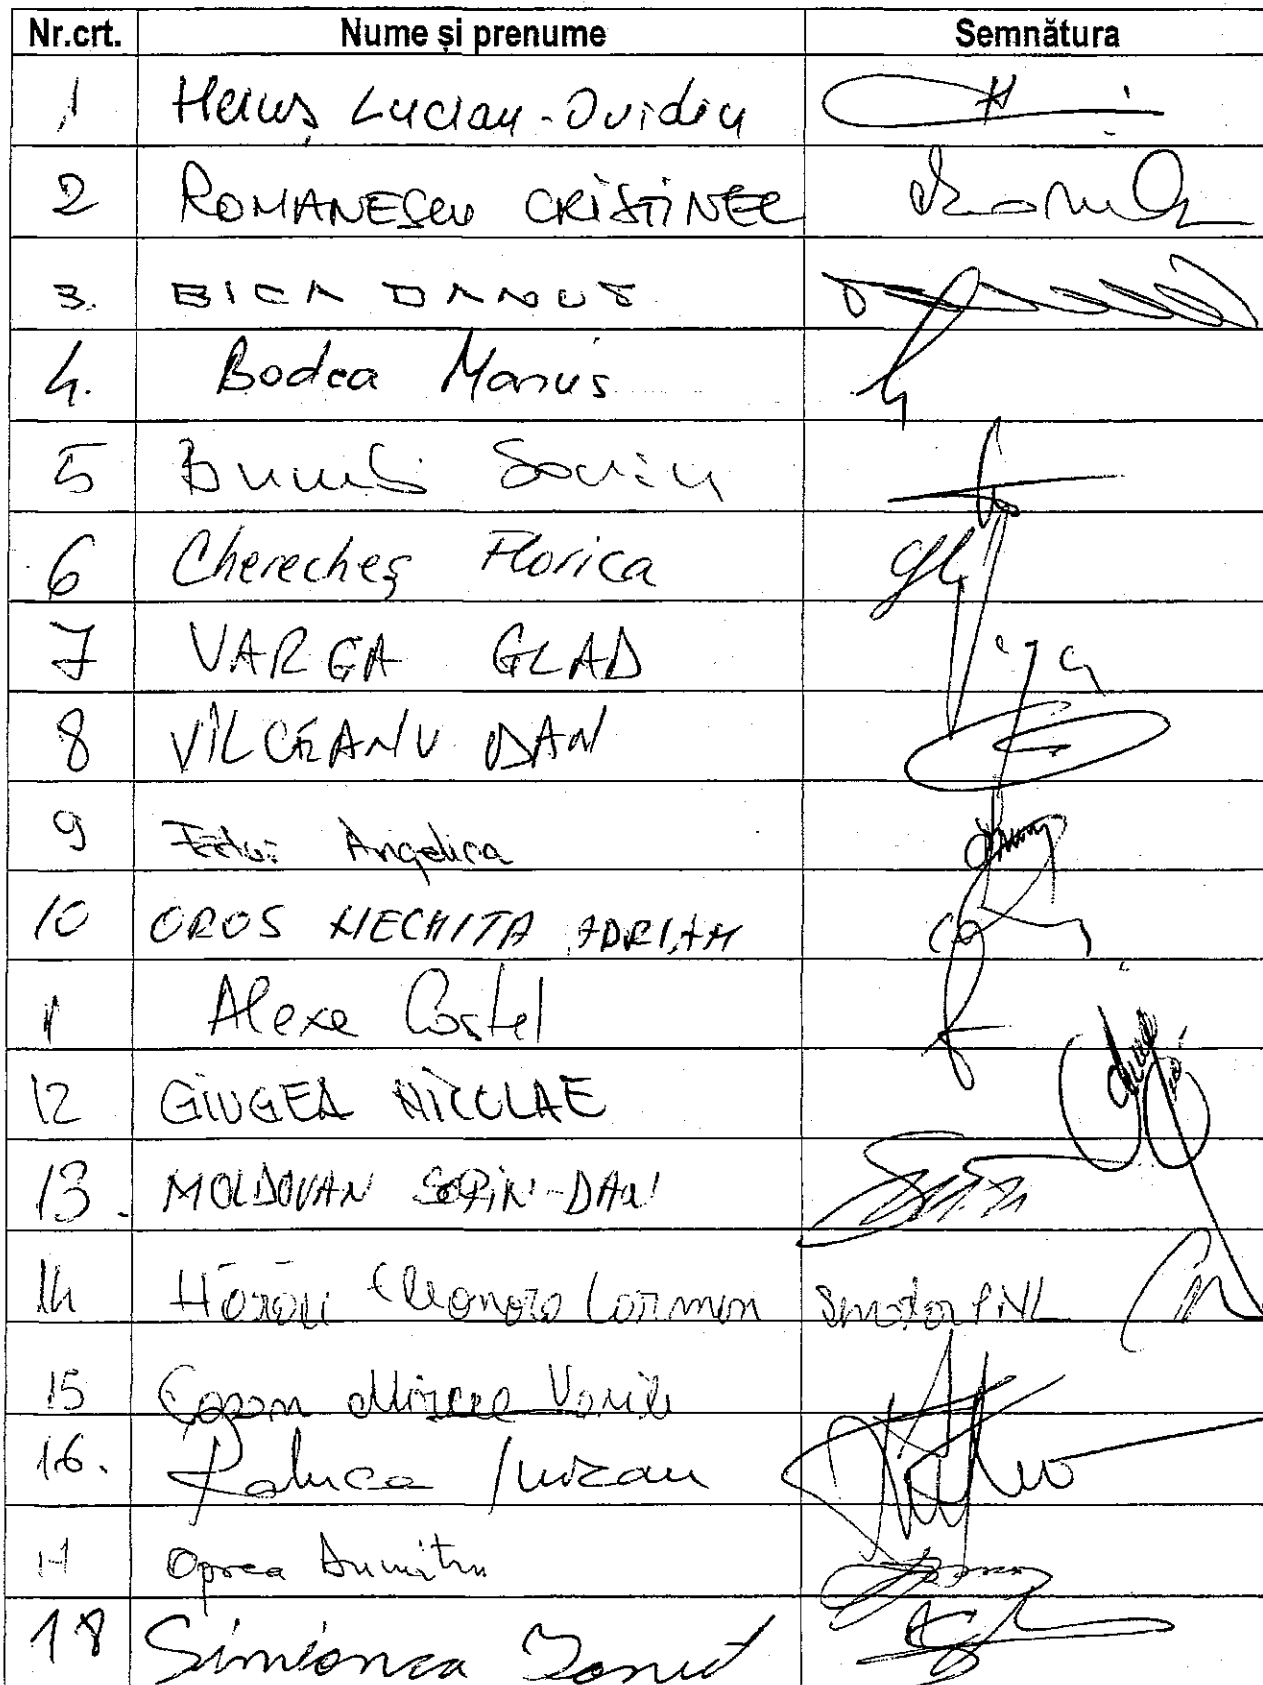 Nr.crt. Nume și prenume Semnătura
1 Heiuș Lucian-Ovidiu
2 ROMANESCU CRISTINEL
3. BICA DANUT
4. Bodea Marius
5 Sorin
6 Cherecheș Florica
7 VARGA GLAD
8 VÎLCEANU DAN
9 Angelica
10 OROS NECHITA ADRIAN
Alexe Costel
12 GIUGEA NICOLAE
13. MOLDOVAN SORIN-DAN
14 Eleonora Carmen senator PNL
15 Mircea Vasile
16. Raluca Turcan
17 Oprea Dumitru
18 Simionca Ionuț